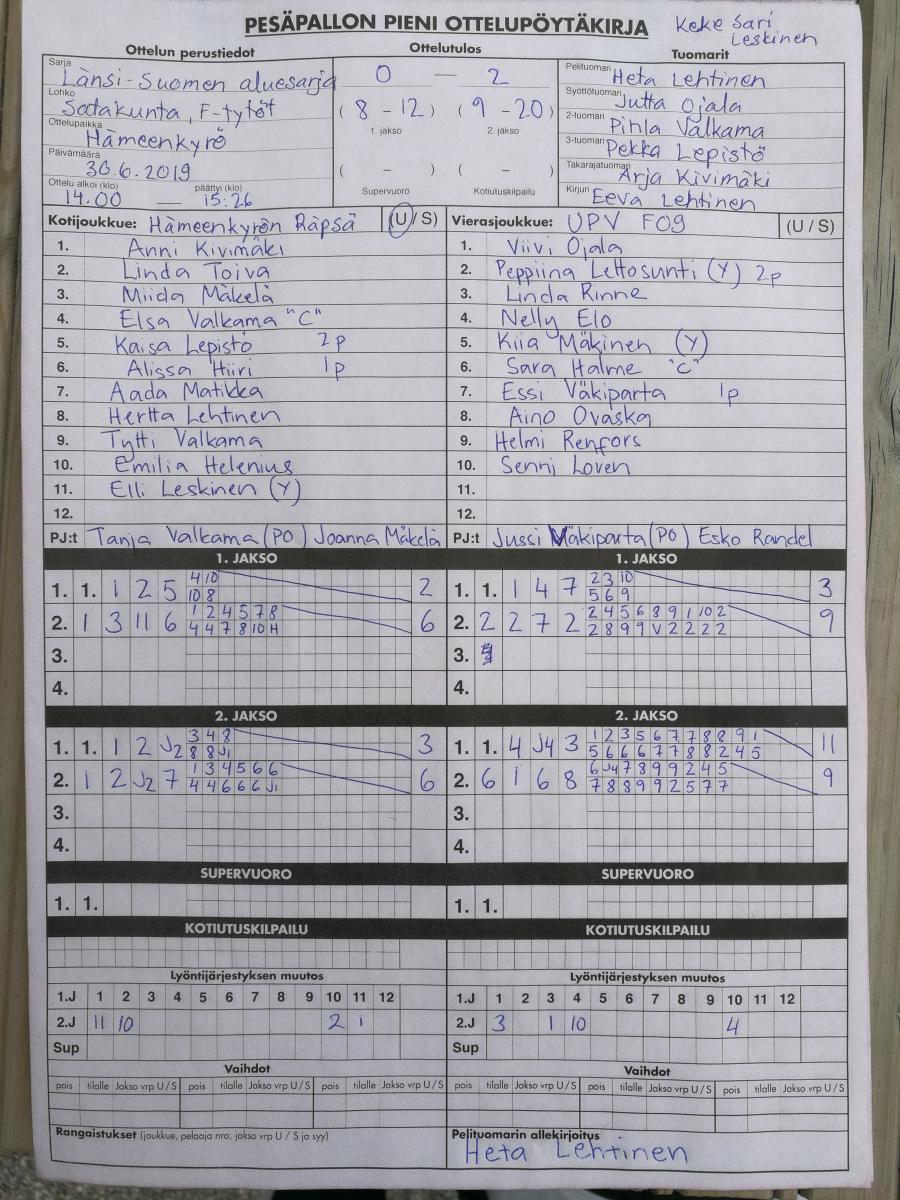 PESÄPALLON PIENI OTTELUPÖYTÄKIRJA
Keke Sari
Leskinen
Ottelun perustiedot
Ottelutulos
Tuomarit
Sarja Länsi-Suomen aluesarja
Lohko Satakunta, F-tytöt
Ottelupaikka Hämeenkyrö
Päivämäärä 30.6.2019
Ottelu alkoi (klo) päättyi (klo)
14.00 — 15.26
0 — 2
(8 - 12) (9 - 20)
1. jakso 2. jakso
( - ) ( - )
Supervuoro Kotiutuskilpailu
Pelituomari Heta Lehtinen
Syöttötuomari Jutta Ojala
2-tuomari Pihla Valkama
3-tuomari Pekka Lepistö
Takarajatuomari Arja Kivimäki
Kirjuri Eeva Lehtinen
Kotijoukkue: Hämeenkyrön Räpsä (U / S)
1. Anni Kivimäki
2. Linda Toiva
3. Miida Mäkelä
4. Elsa Valkama "C"
5. Kaisa Lepistö 2p
6. Alissa Hiiri 1p
7. Aada Matikka
8. Hertta Lehtinen
9. Tytti Valkama
10. Emilia Helenius
11. Elli Leskinen (Y)
12.
PJ:t Tanja Valkama (PO) Joanna Mäkelä
Vierasjoukkue: UPV F09 (U / S)
1. Viivi Ojala
2. Peppiina Lettosunti (Y) 2p
3. Linda Rinne
4. Nelly Elo
5. Kiia Mäkinen (Y)
6. Sara Halme "C"
7. Essi Väkiparta 1p
8. Aino Ovaska
9. Helmi Renfors
10. Senni Loven
11.
12.
PJ:t Jussi Väkiparta (PO) Esko Randel
1. JAKSO
1. 1. 1 2 5 2
4 10
10 8
2. 1 3 11 6 6
1 2 4 5 7 8
4 4 7 8 10 H
3.
4.
1. JAKSO
1. 1. 1 4 7 3
2 3 10
5 6 9
2. 2 2 7 2 9
2 4 5 6 8 9 1 10 2
2 8 9 9 V 2 2 2 2
3.
4.
2. JAKSO
1. 1. 1 2 J2 3
3 4 8
8 8 J1
2. 1 2 J2 7 6
1 3 4 5 6 6
4 4 6 6 6 J1
3.
4.
2. JAKSO
1. 1. 4 J4 3 11
1 2 3 5 6 7 7 8 8 9 1
5 6 6 6 7 7 8 8 2 4 5
2. 6 1 6 8 9
6 J4 7 8 9 9 2 4 5
7 8 8 9 9 2 5 7 7
3.
4.
SUPERVUORO
1. 1.
SUPERVUORO
1. 1.
KOTIUTUSKILPAILU
KOTIUTUSKILPAILU
Lyöntijärjestyksen muutos
1.J 1 2 3 4 5 6 7 8 9 10 11 12
2.J 11 10 2 1
Sup
Lyöntijärjestyksen muutos
1.J 1 2 3 4 5 6 7 8 9 10 11 12
2.J 3 1 10 4
Sup
Vaihdot
pois tilalle Jakso vrp U / S pois tilalle Jakso vrp U / S pois tilalle Jakso vrp U / S
Vaihdot
pois tilalle Jakso vrp U / S pois tilalle Jakso vrp U / S pois tilalle Jakso vrp U / S
Rangaistukset (joukkue, pelaaja nro, jakso vrp U / S ja syy)
Pelituomarin allekirjoitus
Heta Lehtinen